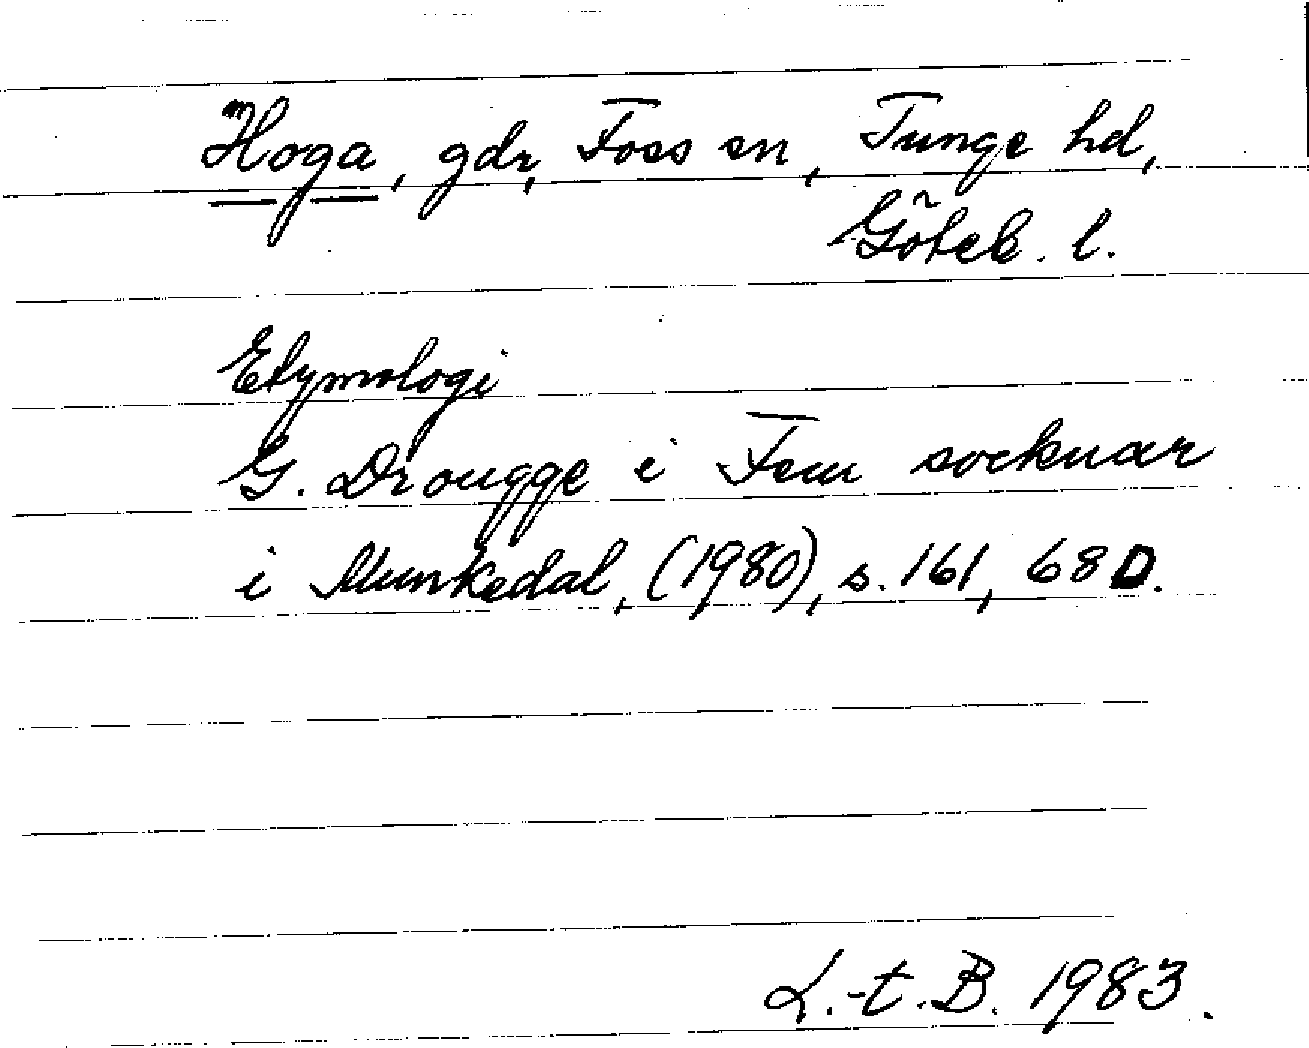 Hoga, gdr, Foss sn, Tunge hd,
Göteb. l.
Etymologi
G. Drougge i Fem socknar
i Munkedal, (1980), s. 161, 68 D.
L.-t. B. 1983.